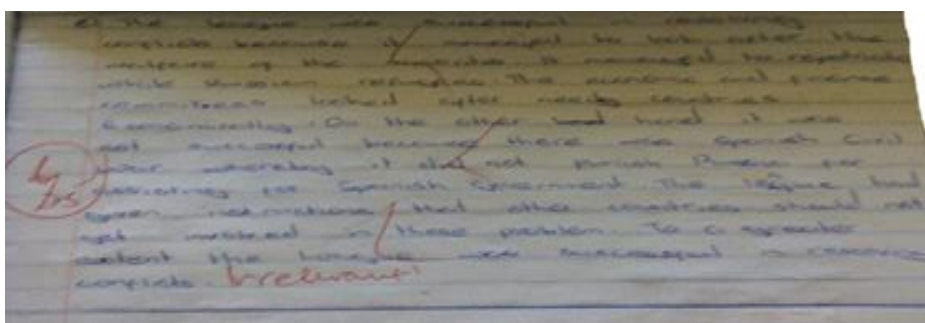 c) The league was successful in resolving
conflicts because it managed to look after the
welfare of the it managed to repatriate
white Russian refugees. The economic and finance
committees looked after needy countries
Economically. On the other hand it was
not successful because there was Spanish Civil
war whereby it did not punish Russia for
assisting for Spanish Government. The league had
given instructions that other countries should not
get involved in these problem. To a greater
extent the league was successful in resolving
conflicts. Irrelevant!